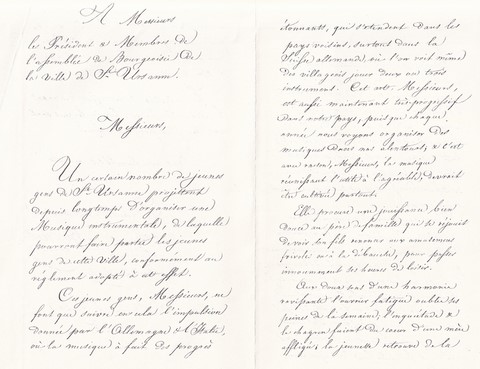 A Messieurs
les Président & Membres de
l'assemblée de Bourgeoisie de
la Ville de St Ursanne.
Messieurs,
Un certain nombre de jeunes
gens de St Ursanne projettent
depuis longtemps d'organiser une
Musique instrumentale, de laquelle
pourront faire partie les jeunes
gens de cette Ville, conformément au
règlement adopté à cet effet.
Ces jeunes gens, Messieurs, ne
font que suivre en cela l'impulsion
donnée par l'Allemagne & l'Italie,
où la musique a fait des progrès
étonnants, qui s'étendent dans les
pays voisins, surtout dans la
Suisse allemande où l'on voit même
des villageois jouer deux ou trois
instruments. Cet art, Messieurs,
est aussi maintenant très progressif
dans notre pays, puisque chaque
année nous voyons organiser des
musiques dans nos alentours, & c'est
avec raison, Messieurs, la musique
réunissant l'utile à l'agréable, devrait
être cultivée partout.
Elle procure une jouissance bien
douce au père de famille qui se réjouit
de voir son fils renoncer aux amusements
frivoles ou à la débauche, pour passer
innocemment ses heures de loisir.
Aux doux sons d'une harmonie
ravissante l'ouvrier fatigué oublie ses
peines de la semaine, l'inquiétude &
le chagrin fuient du cœur d'une mère
affligée, la jeunesse retrouve de la